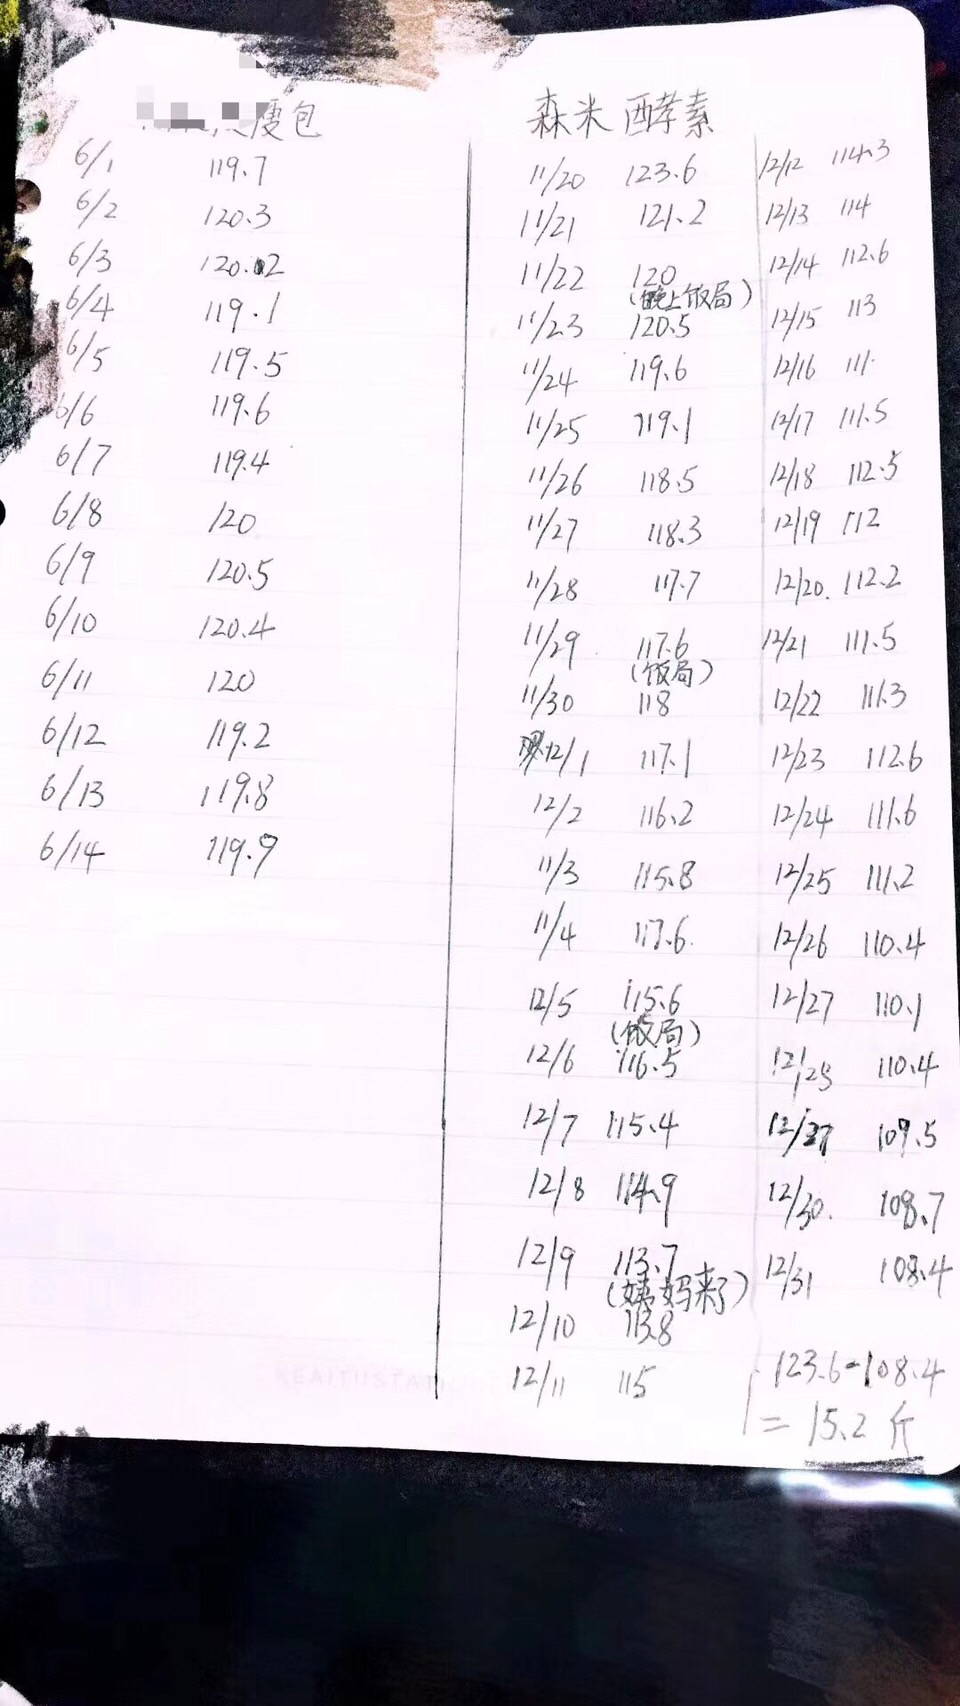 瘦包
6/1 119.7
6/2 120.3
6/3 120.2
6/4 119.1
6/5 119.5
6/6 119.6
6/7 119.4
6/8 120
6/9 120.5
6/10 120.4
6/11 120
6/12 119.2
6/13 119.8
6/14 119.9
森米 酵素
11/20 123.6
11/21 121.2
11/22 120
(晚上饭局)
11/23 120.5
11/24 119.6
11/25 119.1
11/26 118.5
11/27 118.3
11/28 117.7
11/29 117.6
(饭局)
11/30 118
12/1 117.1
12/2 116.2
11/3 115.8
11/4 117.6
12/5 115.6
(饭局)
12/6 116.5
12/7 115.4
12/8 114.9
12/9 113.7
(姨妈来了)
12/10 113.8
12/11 115
12/12 114.3
12/13 114
12/14 112.6
12/15 113
12/16 111
12/17 111.5
12/18 112.5
12/19 112
12/20. 112.2
12/21 111.5
12/22 111.3
12/23 112.6
12/24 111.6
12/25 111.2
12/26 110.4
12/27 110.1
110.4
109.5
12/30. 108.7
12/31 108.4
123.6-108.4
=15.2斤